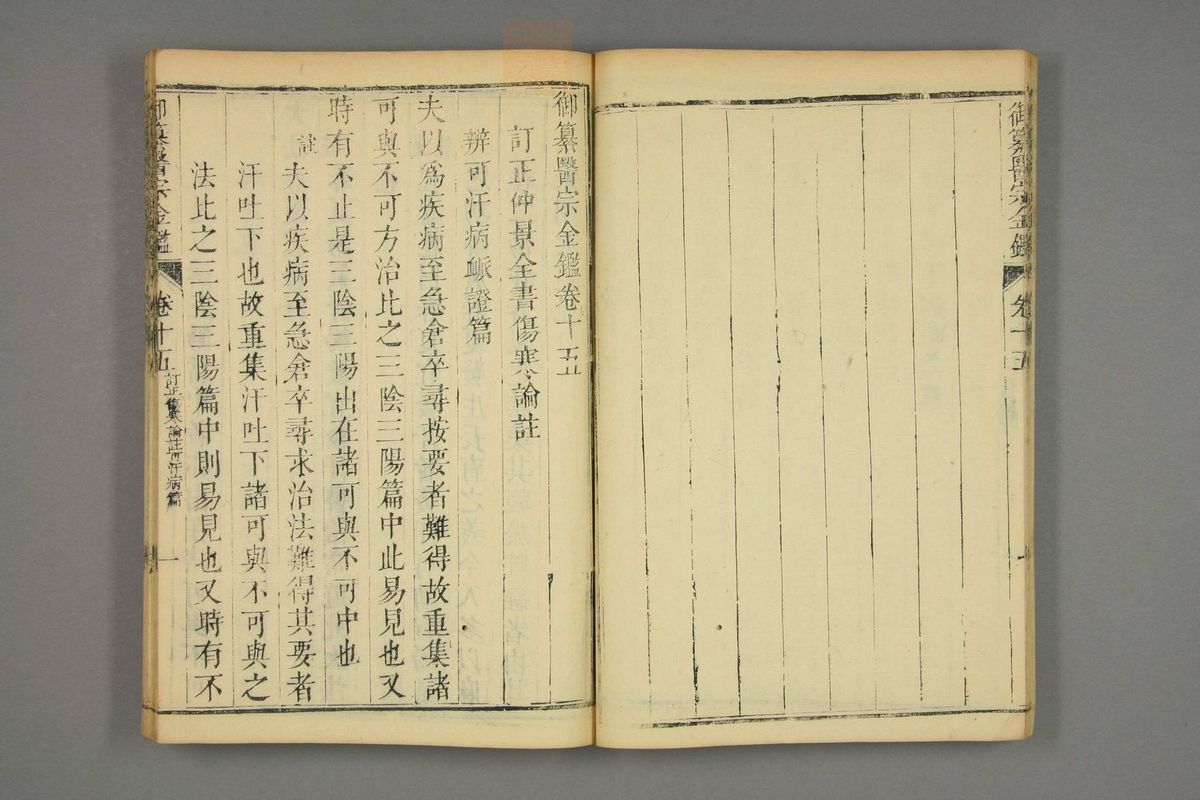 御纂醫宗金鑑
卷十五
御纂醫宗金鑑卷十五
訂正仲景全書傷寒論註
辨可汗病脈證篇
夫以爲疾病至急倉卒尋按要者難得故重集諸
可與不可方治比之三陰三陽篇中此易見也又
時有不止是三陰三陽出在諸可與不可中也
註
夫以疾病至急倉卒尋求治法難得其要者
汗吐下也故重集汗吐下諸可與不可與之
法比之三陰三陽篇中則易見也又時有不
御纂醫宗金鑑
卷十五
訂正傷寒論註可汗病篇
一